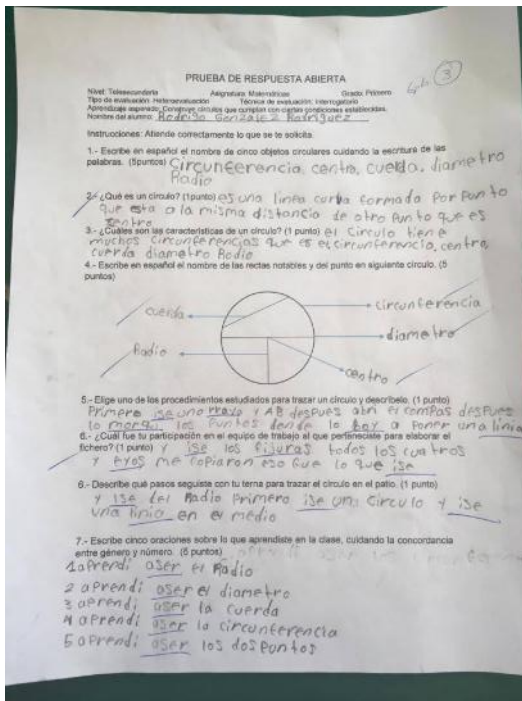 PRUEBA DE RESPUESTA ABIERTA
3
Nivel: Telesecundaria Asignatura: Matemáticas Grado: Primero
Tipo de evaluación: Heteroevaluación Técnica de evaluación: Interrogatorio
Aprendizaje esperado: Construye círculos que cumplan con ciertas condiciones establecidas.
Nombre del alumno: Rodrigo Gonzalez Rodriguez
Instrucciones: Atiende correctamente lo que se te solicita.
1.- Escribe en español el nombre de cinco objetos circulares cuidando la escritura de las
palabras. (5puntos) Circunferencia, centro, cuerda, diametro
Radio
2.- ¿Qué es un círculo? (1punto) es una linea curba formada Por Punto
que esta a la misma distancia de otro Punto que es
sentro
3.- ¿Cuáles son las características de un círculo? (1 punto) el Circulo tiene
muchos circunferencias que es el circunferencia, centro,
cuerda diametro Radio
4.- Escribe en español el nombre de las rectas notables y del punto en siguiente círculo. (5
puntos)
cuerda
circunferencia
diametro
Radio
centro
5.- Elige uno de los procedimientos estudiados para trazar un círculo y descríbelo. (1 punto)
Primero ise uno rrayo y AB despues abri el compas despues
lo marqu. los Puntos donde lo boy a poner una linia
6.- ¿Cuál fue tu participación en el equipo de trabajo al que perteneciste para elaborar el
fichero? (1 punto) y ise los figuras todos los cuatros
y eyos me copiaron eso que lo que ise
6.- Describe qué pasos seguiste con tu terna para trazar el círculo en el patio. (1 punto)
y ise del Radio Primero ise una Circulo y ise
una linia en el medio
7.- Escribe cinco oraciones sobre lo que aprendiste en la clase, cuidando la concordancia
entre género y número. (5 puntos)
1 aprendi aser el Radio
2 aprendi aser el diametro
3 aprendi aser la cuerda
4 aprendi aser la circunferencia
5 aprendi aser los dos Puntos